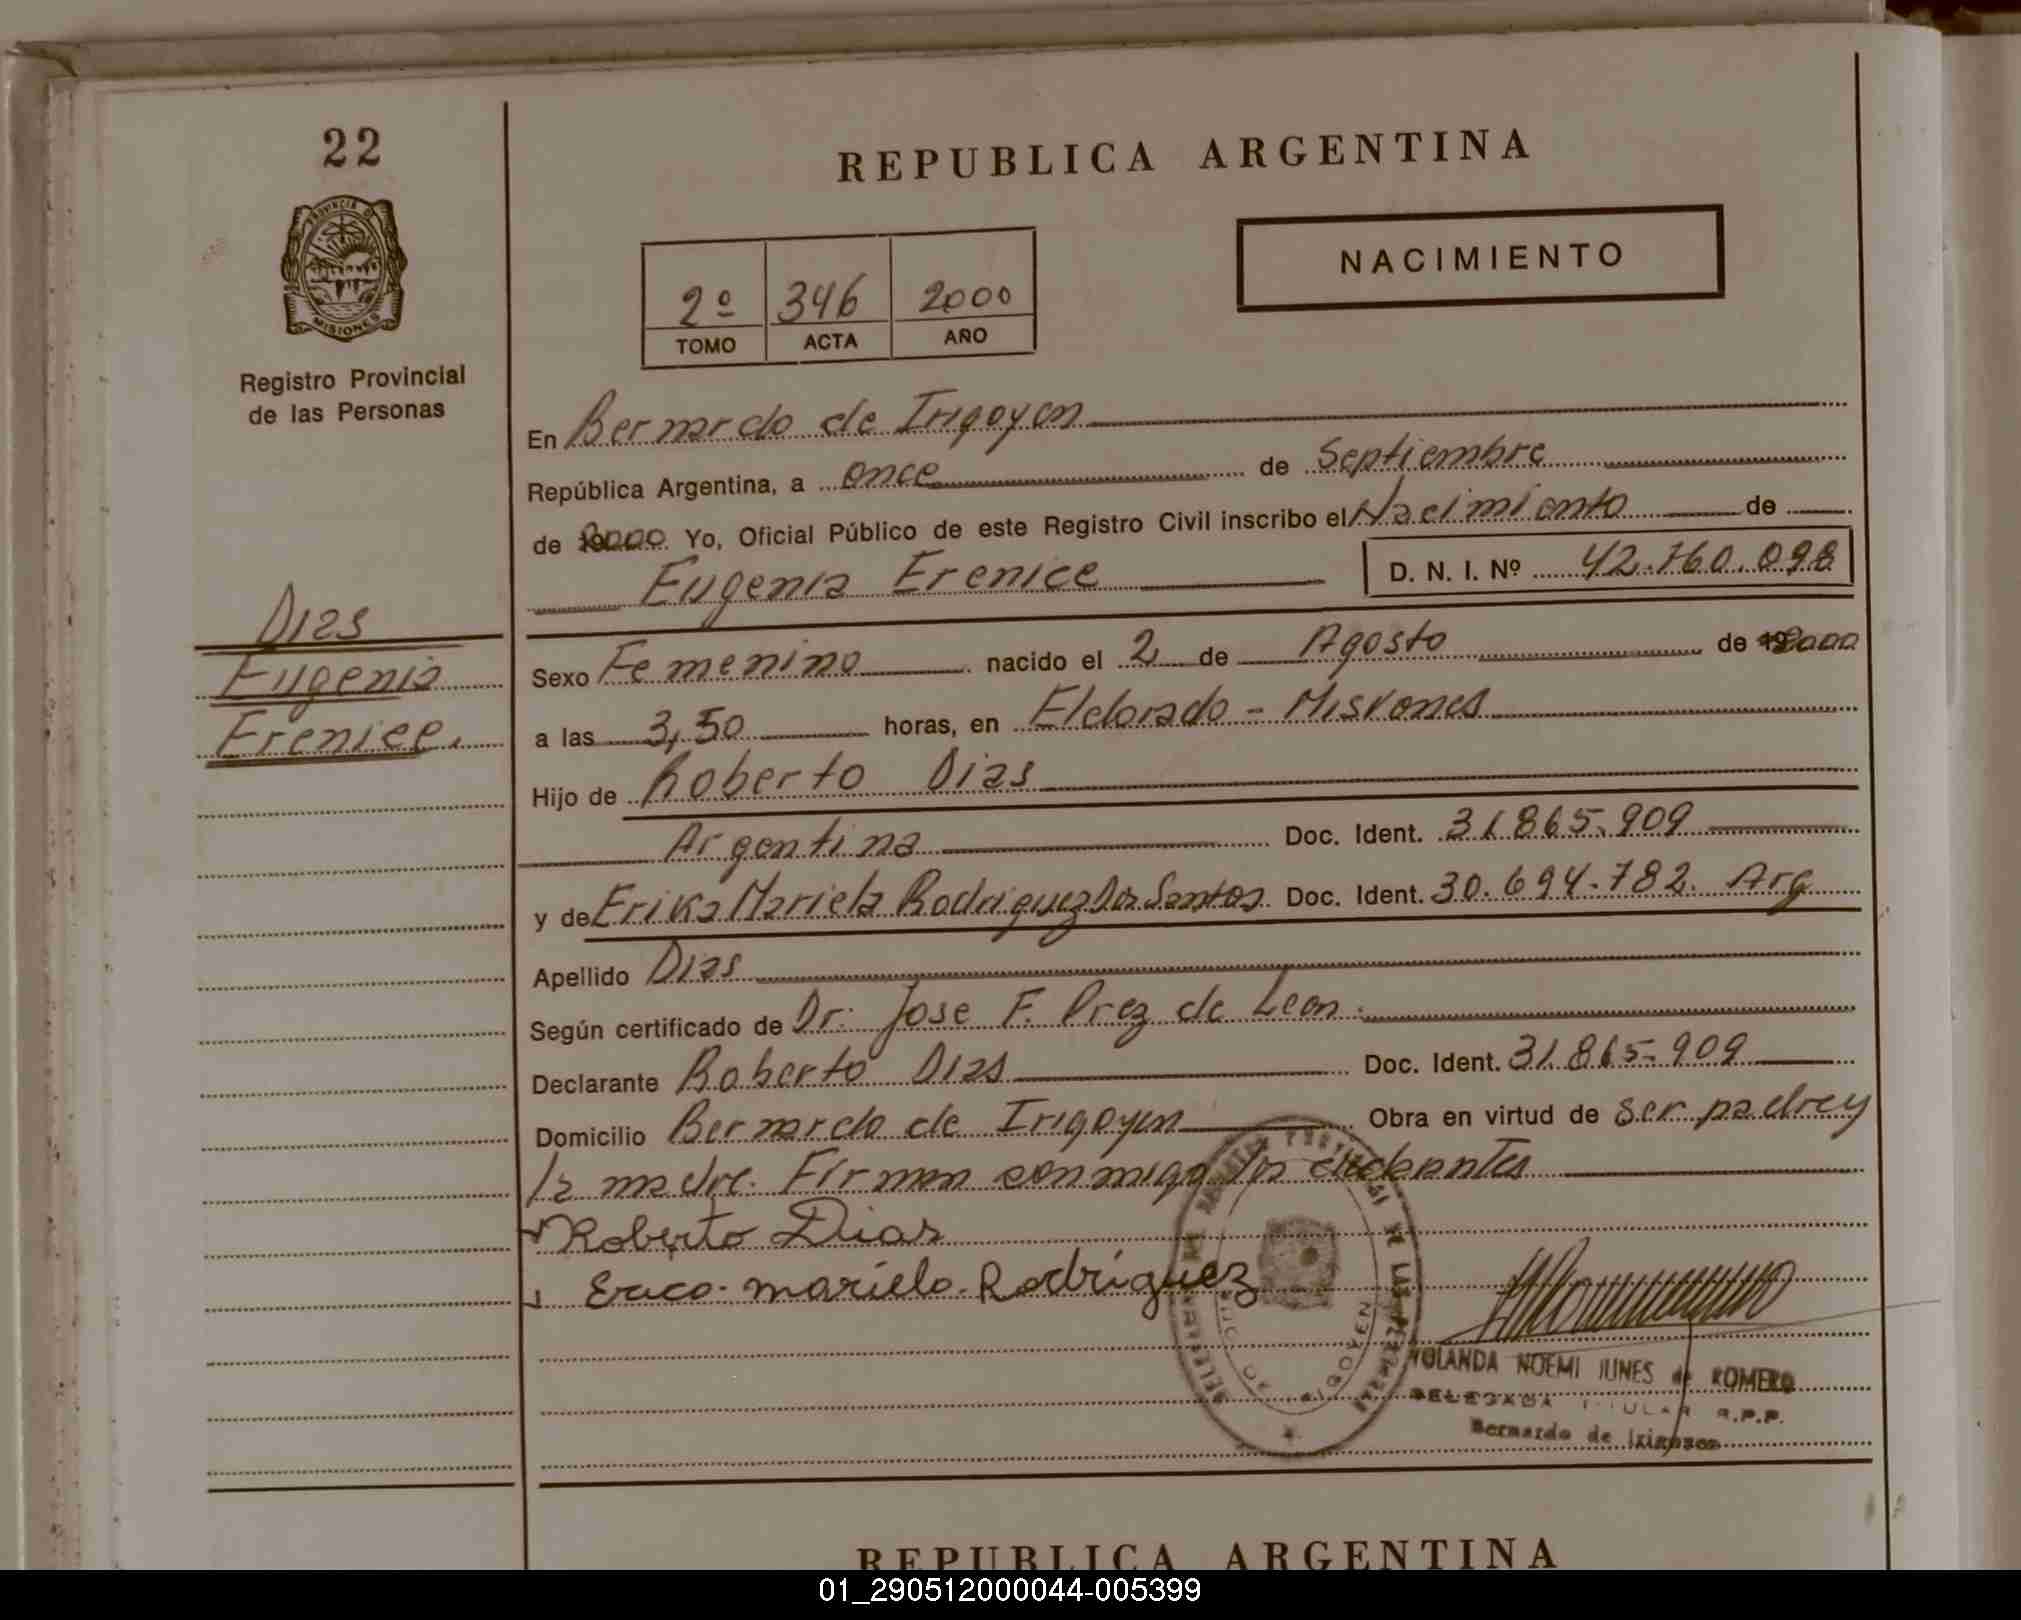 22
REPUBLICA ARGENTINA
PROVINCIA DE
MISIONES
NACIMIENTO
2º 346 2000
TOMO ACTA AÑO
Registro Provincial
de las Personas
En Bernardo de Irigoyen
República Argentina, a once de Septiembre
de 2000 Yo, Oficial Público de este Registro Civil inscribo el Nacimiento de
Eugenia Erenice D. N. I. Nº 42.760.098
Dias
Eugenia
Erenice.
Sexo Femenino nacido el 2 de Agosto de 2000
a las 3,50 horas, en Eldorado - Misiones
Hijo de Roberto Dias
Argentina Doc. Ident. 31.865.909
y de Erika Mariela Rodriguez Dos Santos Doc. Ident. 30.694.782. Arg
Apellido Dias
Según certificado de Dr. Jose F. Prez de Leon.
Declarante Roberto Dias Doc. Ident. 31.865.909
Domicilio Bernardo de Irigoyen Obra en virtud de ser padre y
la madre. Firman conmigo los
Roberto Dias
Erica. mariela. Rodríguez
YOLANDA NOEMI JUNES de ROMERO
DELEGADA TITULAR R.P.P.
Bernardo de Irigoyen
REPUBLICA ARGENTINA
01_290512000044-005399